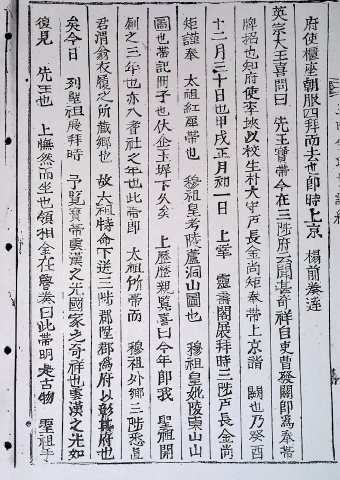 府使櫃座朝服四拜而去也卽時上京 榻前奏達
英宗大王喜問曰 先王寶帶今在三陟府云聞甚奇祥自吏曹發關卽爲奉帶
牌招也知府使李埉以校生朴大中戶長金尙矩奉帶上京詣 闕也乃癸酉
十二月三十日也甲戌正月初一日 上宰 靈壽閣展拜時三陟戶長金尙
矩謹奉 太祖紅犀帶也 穆祖皇考陵蘆洞山圖也 穆祖皇妣陵東山山
圖也帶記冊子也伏企玉墀下久矣 上歷歷親覧喜曰今年卽我 聖祖開
刱之三年也亦八耆社之年也此帶卽 太祖所帶而 穆祖外鄕三陟悉直
君渭翁衣履之所藏鄕也 故 太祖特命下送三陟郡陞郡爲府以彰其府也
矣今日 列聖祖展拜時 予覧寶帶雲漢之光國家之奇祥也雲漢之光如
復見 先王也 上憮然而坐也領相金在魯奏曰此帶明是古物 聖祖手